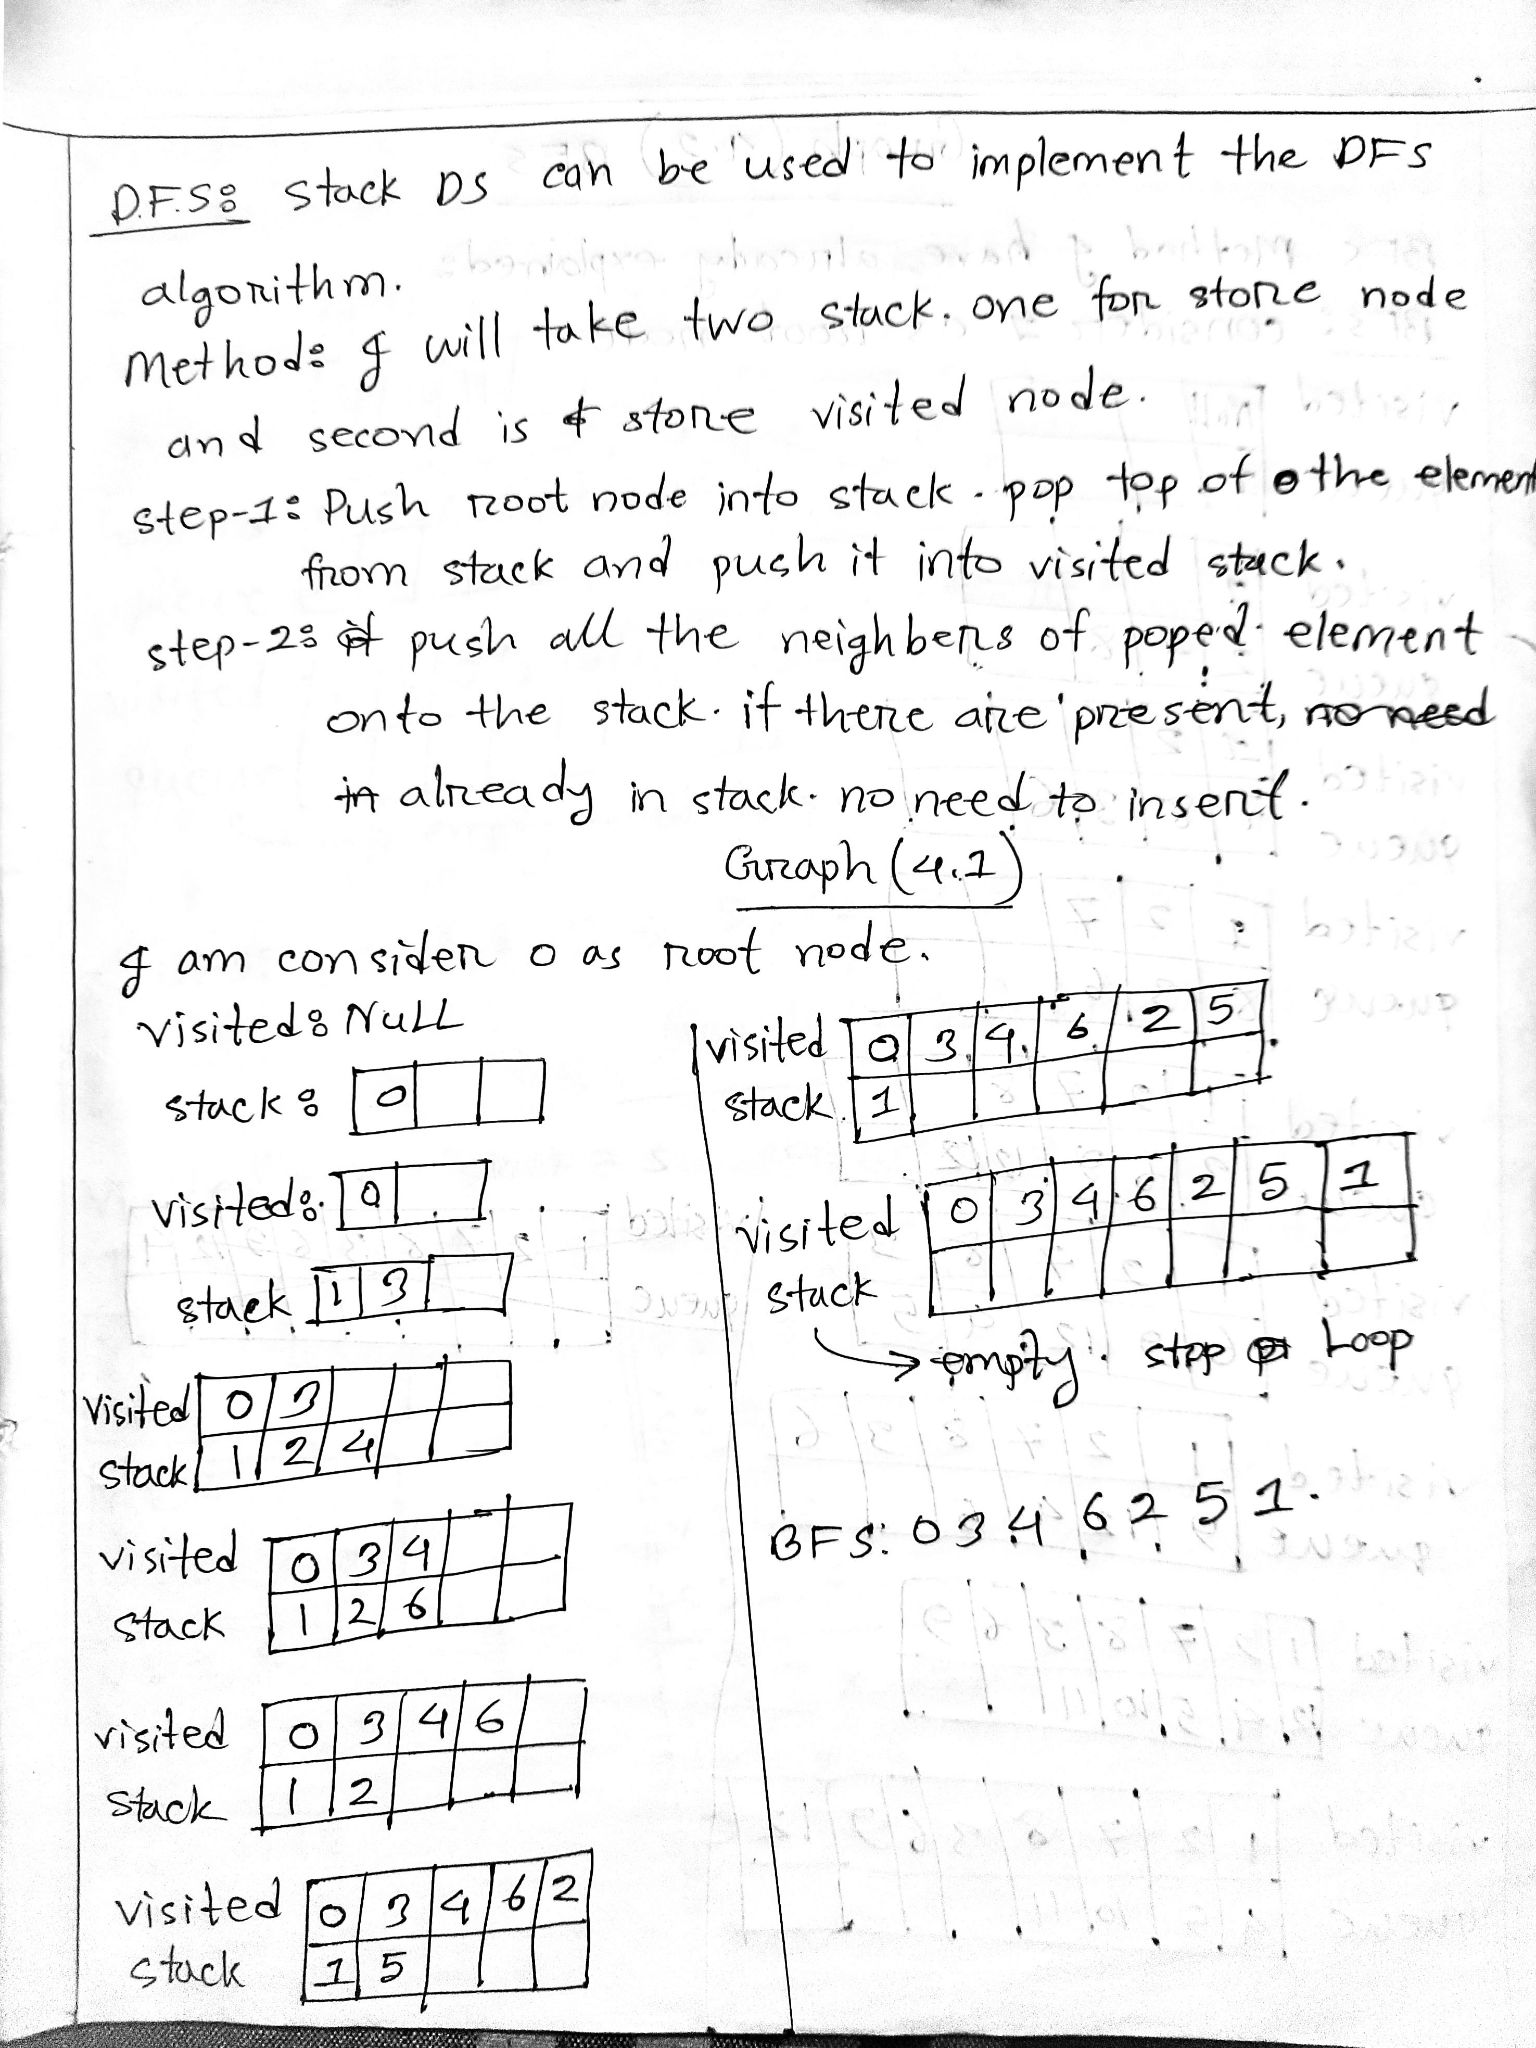 D.F.S: stack DS can be used to implement the DFS
algorithm.
Method: I will take two stack. one for store node
and second is store visited node.
step-1: Push root node into stack. pop top of the element
from stack and push it into visited stack.
step-2: push all the neighbers of poped element
onto the stack. if there are present, no need
in already in stack. no need to insert.
Graph (4.1)
I am consider 0 as root node.
visited: NULL
stack: 0
visited: 0
stack 1 3
visited 0 3
stack 1 2 4
visited 0 3 4
stack 1 2 6
visited 0 3 4 6
stack 1 2
visited 0 3 4 6 2
stack 1 5
visited 0 3 4 6 2 5
stack 1
visited 0 3 4 6 2 5 1
stack
→ empty. stop Loop
BFS: 0 3 4 6 2 5 1.